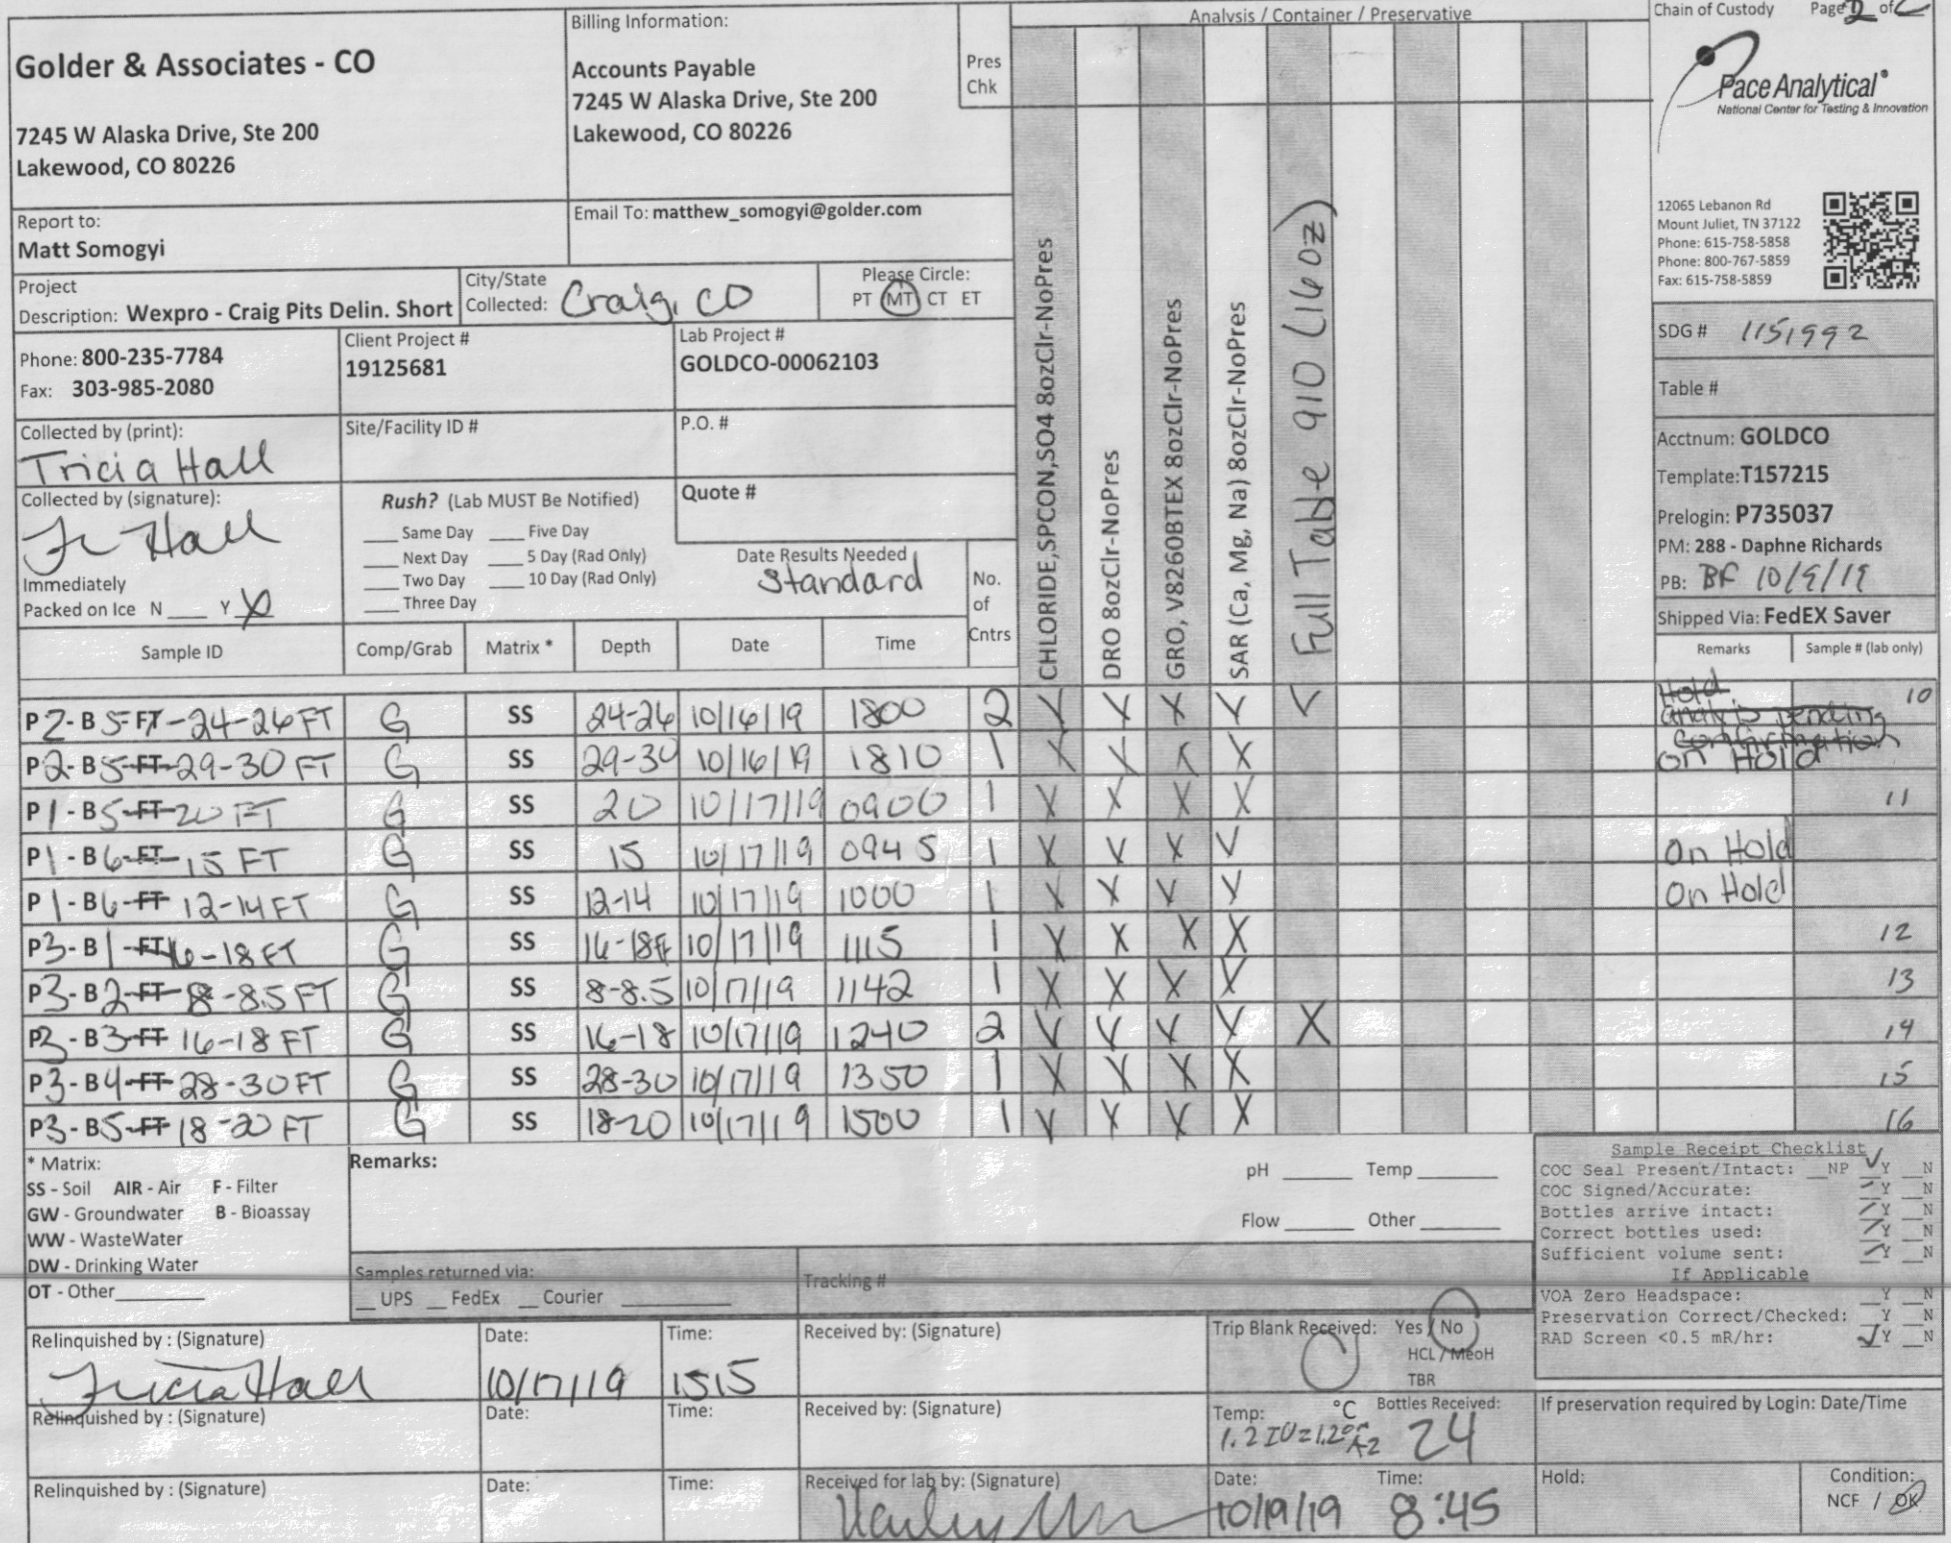 Chain of Custody Page 2 of
Golder & Associates - CO
7245 W Alaska Drive, Ste 200
Lakewood, CO 80226
Billing Information:
Accounts Payable
7245 W Alaska Drive, Ste 200
Lakewood, CO 80226
Pres
Chk
Analysis / Container / Preservative
CHLORIDE,SPCON,SO4 8ozClr-NoPres
DRO 8ozClr-NoPres
GRO, V8260BTEX 8ozClr-NoPres
SAR (Ca, Mg, Na) 8ozClr-NoPres
Full Table 910 (16oz)
Pace Analytical®
National Center for Testing & Innovation
12065 Lebanon Rd
Mount Juliet, TN 37122
Phone: 615-758-5858
Phone: 800-767-5859
Fax: 615-758-5859
Report to:
Matt Somogyi
Email To: matthew_somogyi@golder.com
Project
Description: Wexpro - Craig Pits Delin. Short
City/State
Collected: Craig, CO
Please Circle:
PT MT CT ET
Phone: 800-235-7784
Fax: 303-985-2080
Client Project #
19125681
Lab Project #
GOLDCO-00062103
Collected by (print):
Tricia Hall
Site/Facility ID #
P.O. #
Collected by (signature):
Tr Hall
Rush? (Lab MUST Be Notified)
___ Same Day ___ Five Day
___ Next Day ___ 5 Day (Rad Only)
___ Two Day ___ 10 Day (Rad Only)
___ Three Day
Quote #
Date Results Needed
Standard
Immediately
Packed on Ice N ___ Y X
No.
of
Cntrs
SDG # 1151992
Table #
Acctnum: GOLDCO
Template:T157215
Prelogin: P735037
PM: 288 - Daphne Richards
PB: BF 10/9/19
Shipped Via: FedEX Saver
Sample ID Comp/Grab Matrix * Depth Date Time Remarks Sample # (lab only)
P2-B5-FT-24-26FT G SS 24-26 10/16/19 1800 2 X X X X X Hold analysis pending confirmation 10
P2-B5-FT-29-30FT G SS 29-30 10/16/19 1810 1 X X X X On Hold
P1-B5-FT-20FT G SS 20 10/17/19 0900 1 X X X X 11
P1-B6-FT-15FT G SS 15 10/17/19 0945 1 X X X X On Hold
P1-B6-FT 12-14FT G SS 12-14 10/17/19 1000 1 X X X X On Hold
P3-B1-FT16-18FT G SS 16-18ft 10/17/19 1115 1 X X X X 12
P3-B2-FT-8-8.5FT G SS 8-8.5 10/17/19 1142 1 X X X X 13
P3-B3-FT 16-18FT G SS 16-18 10/17/19 1240 2 X X X X X 14
P3-B4-FT-28-30FT G SS 28-30 10/17/19 1350 1 X X X X 15
P3-B5-FT 18-20FT G SS 18-20 10/17/19 1500 1 X X X X 16
* Matrix:
SS - Soil AIR - Air F - Filter
GW - Groundwater B - Bioassay
WW - WasteWater
DW - Drinking Water
OT - Other___
Remarks:
pH ___ Temp ___
Flow ___ Other ___
Samples returned via:
__ UPS __ FedEx __ Courier ___
Tracking #
Sample Receipt Checklist
COC Seal Present/Intact: __NP ✓Y __N
COC Signed/Accurate: ✓Y __N
Bottles arrive intact: ✓Y __N
Correct bottles used: ✓Y __N
Sufficient volume sent: ✓Y __N
If Applicable
VOA Zero Headspace: __Y __N
Preservation Correct/Checked: __Y __N
RAD Screen <0.5 mR/hr: ✓Y __N
Relinquished by : (Signature) Date: Time: Received by: (Signature)
Tricia Hall 10/17/19 1515
Trip Blank Received: Yes / No
HCL / MeoH
TBR
Relinquished by : (Signature) Date: Time: Received by: (Signature)
Temp: °C Bottles Received:
24
If preservation required by Login: Date/Time
Relinquished by : (Signature) Date: Time: Received for lab by: (Signature)
Date: Time:
10/19/19 8:45
Hold:
Condition:
NCF / OK